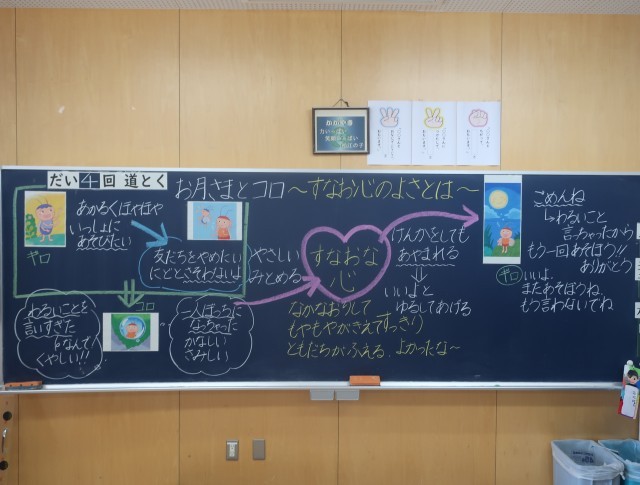 だい4回 道とく
お月さまとコロ
～すなお心のよさとは～
あかるくほやほや
いっしょに
あそびたい
ギロ
友だちをやめたい
にどとさそわないよ
わるいことを
言いすぎた
なんて
くやしい!!
コロ
一人ぼっちに
なっちゃった
かなしい
さみしい
やさしい
みとめる
すなおな
心
けんかをしても
あやまれる
いいよと
ゆるしてあげる
なかなおりして
もやもやがきえてすっきり
ともだちがふえる よかったな～
ごめんね
わるいこと
言わちゃったから
もう一回あそぼう!!
ありがとう
ギロ いいよ。
またあそぼうね。
もう言わないでね